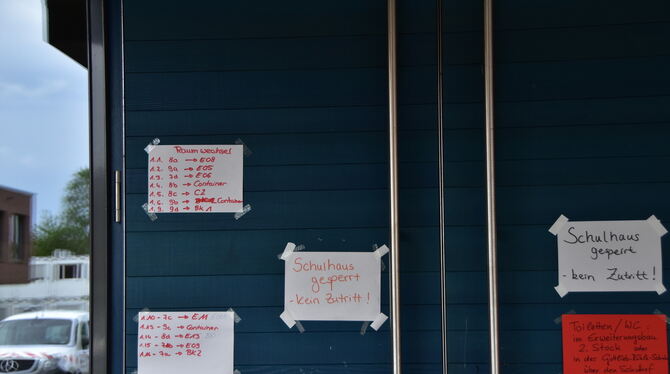 Raumwechsel
1.1. 8a → E08
1.2. 9a → E05
1.3. 7d → E06
1.4. 8b → Container
1.5. 8c → C2
1.6. 9b → Container
1.9. 9d → BK1
1.10 - 7c → E11
1.13 - 9c → Container
1.14 - 8d → E13
1.15 - 7b → E09
1.16 - 7a → BK2
Schulhaus
gesperrt
- kein Zutritt!
Schulhaus
gesperrt
- kein Zutritt!
Toiletten / WC:
im Erweiterungsbau
2. Stock oder
in der
über den